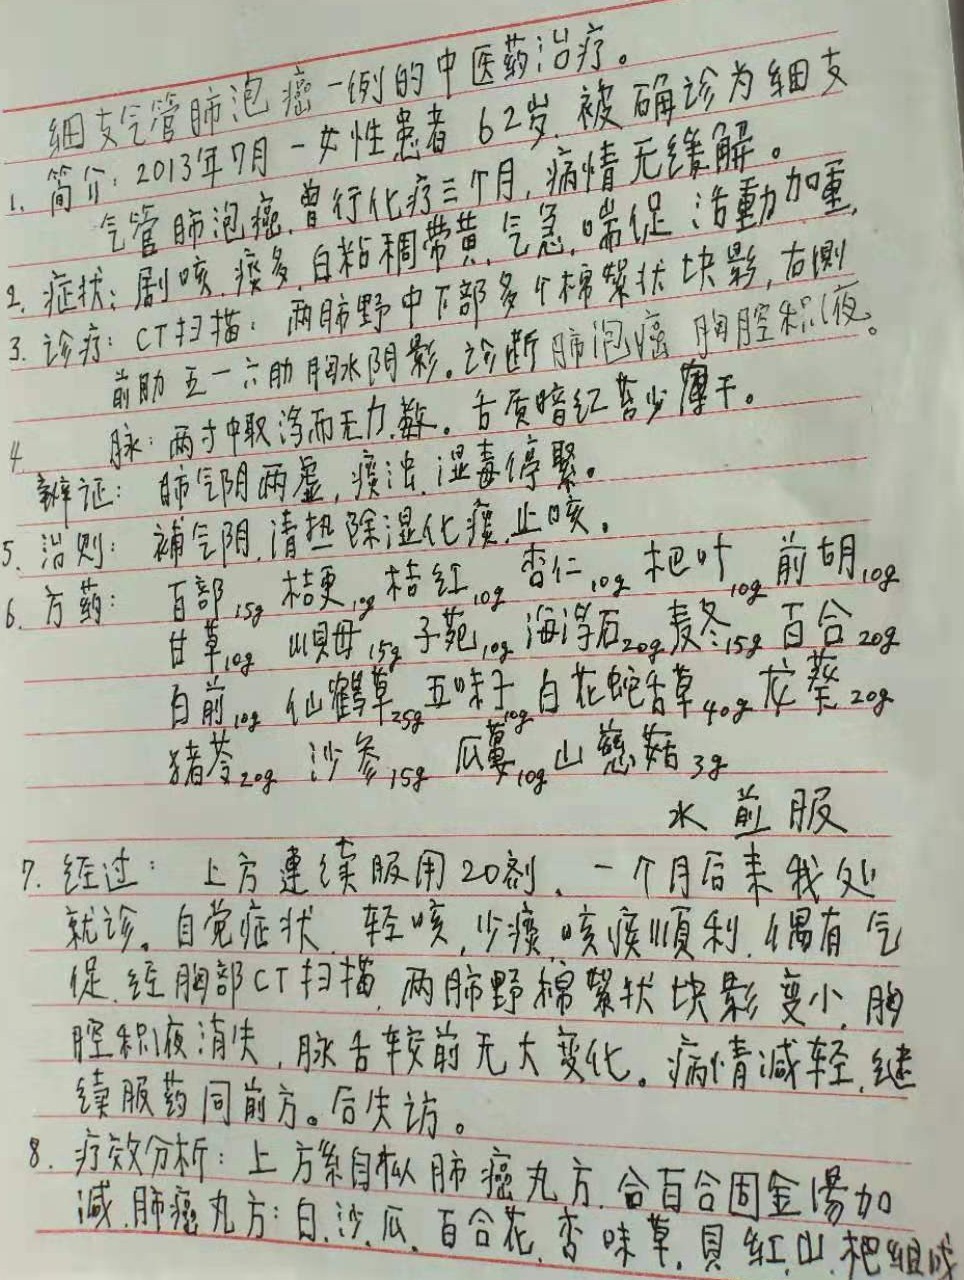 细支气管肺泡癌一例的中医药治疗。
1. 简介: 2013年7月一女性患者 62岁. 被确诊为细支
气管肺泡癌. 曾行化疗三个月, 病情无缓解。
2. 症状: 剧咳. 痰多. 白粘稠带黄. 气急. 喘促 活動加重,
3. 诊疗: CT扫描: 两肺野中下部多个棉絮状块影, 右側
前肋五一六肋胸水阴影。诊断肺泡癌 胸腔积液。
4 脉: 两寸中取浮而无力. 数。舌质暗红苔少薄干。
辨证: 肺气阴两虚, 痰浊. 湿毒停聚。
5. 治则: 補气阴. 清热除湿化痰. 止咳。
6. 方药: 百部15g 桔梗10g 桔红10g 杏仁10g 杷叶10g 前胡10g
甘草10g 川貝母15g 子菀10g 海浮石20g 麦冬15g 百合20g
白前10g 仙鹤草25g 五味子10g 白花蛇舌草40g 龙葵20g
猪苓20g 沙参15g 瓜蔞10g 山慈菇3g
水煎服
7. 经过: 上方連续服用20剂、一个月后来我处
就诊。自觉症状. 轻咳, 少痰. 咳痰順利. 偶有气
促. 经胸部CT扫描. 两肺野棉絮状块影变小. 胸
腔积液消失. 脉舌较前无大变化。病情减轻. 继
续服药同前方。后失访。
8. 疗效分析: 上方系自拟肺癌丸方. 合百合固金湯加
减. 肺癌丸方: 白. 沙. 瓜. 百合花. 杏味草. 貝红. 山. 杷组成